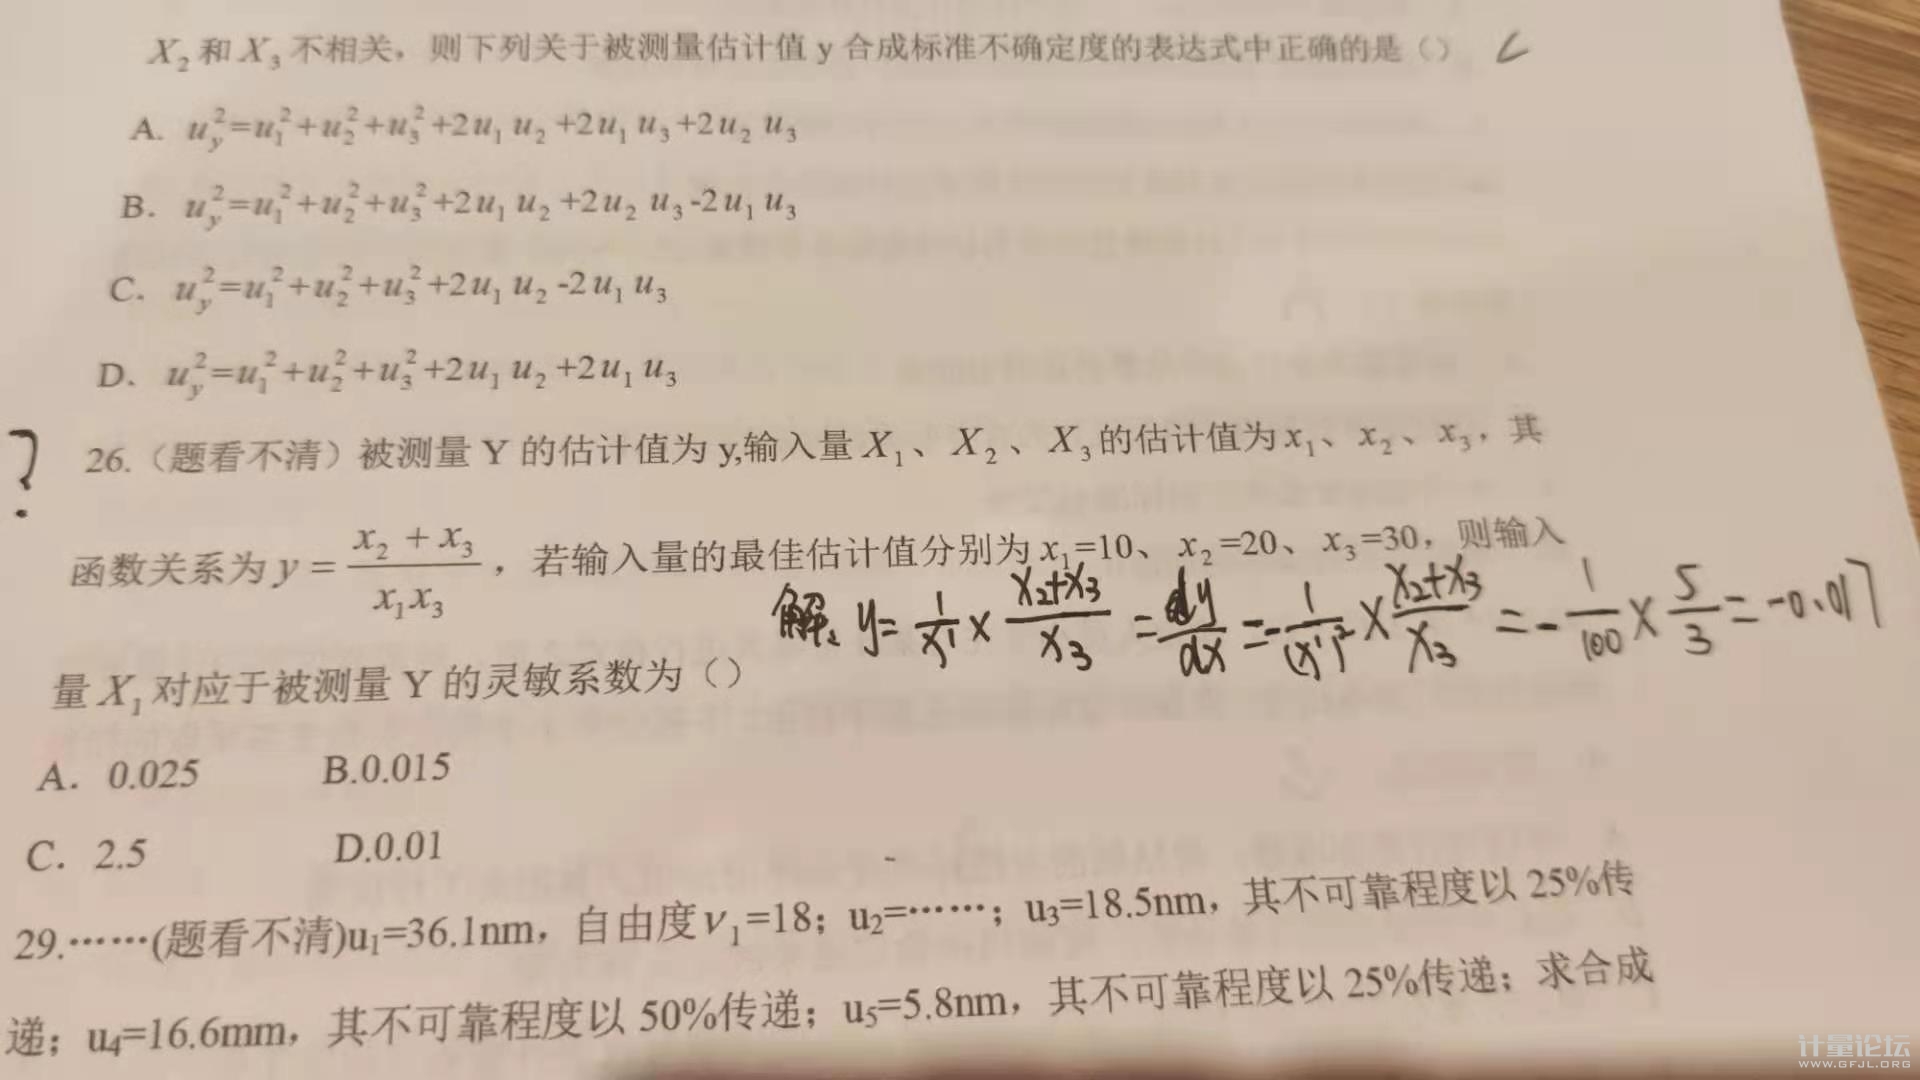 X₂和X₃不相关，则下列关于被测量估计值 y 合成标准不确定度的表达式中正确的是（） C
A. u_y²=u₁²+u₂²+u₃²+2u₁ u₂ +2u₁ u₃+2u₂ u₃
B. u_y²=u₁²+u₂²+u₃²+2u₁ u₂ +2u₂ u₃-2u₁ u₃
C. u_y²=u₁²+u₂²+u₃²+2u₁ u₂ -2u₁ u₃
D. u_y²=u₁²+u₂²+u₃²+2u₁ u₂ +2u₁ u₃
? 26.（题看不清）被测量 Y 的估计值为 y,输入量 X₁、X₂、X₃的估计值为x₁、x₂、x₃，其
函数关系为 y = (x₂ + x₃)/(x₁x₃)，若输入量的最佳估计值分别为 x₁=10、x₂=20、x₃=30，则输入
解、y= 1/x¹ × (x₂+x₃)/x₃ = dy/dx = -1/(x¹)² × (x₂+x₃)/x₃ = -1/100 × 5/3 = -0.017
量 X₁对应于被测量 Y 的灵敏系数为（）
A. 0.025 B.0.015
C. 2.5 D.0.01
29.……(题看不清)u₁=36.1nm，自由度ν₁=18；u₂=……；u₃=18.5nm，其不可靠程度以 25%传
递；u₄=16.6mm，其不可靠程度以 50%传递；u₅=5.8nm，其不可靠程度以 25%传递；求合成
计量论坛
WWW.GFJL.ORG